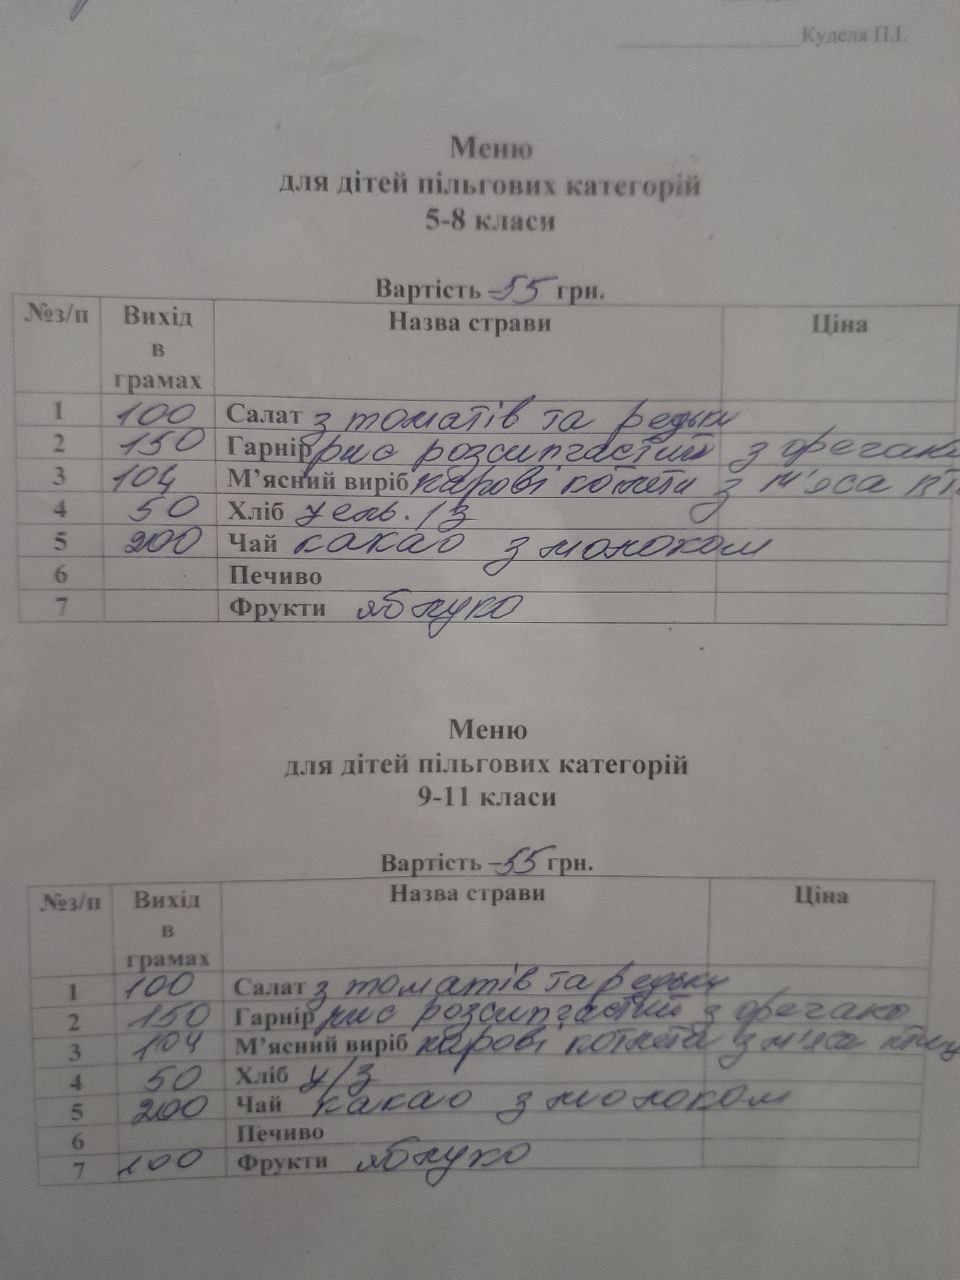 Куделя П.І.
Меню
для дітей пільгових категорій
5-8 класи
Вартість - 55 грн.
№з/п Вихід в грамах Назва страви Ціна
1 100 Салат з томатів та редьки
2 150 Гарнір рис розсипчастий з орегано
3 104 М’ясний виріб парові котлети з м'яса
4 50 Хліб цель. /з
5 200 Чай какао з молоком
6 Печиво
7 Фрукти яблуко
Меню
для дітей пільгових категорій
9-11 класи
Вартість - 55 грн.
№з/п Вихід в грамах Назва страви Ціна
1 100 Салат з томатів та редьки
2 150 Гарнір рис розсипчастий з орегано
3 104 М’ясний виріб парові котлети з м'яса птиц
4 50 Хліб ц/з
5 200 Чай какао з молоком
6 Печиво
7 100 Фрукти яблуко